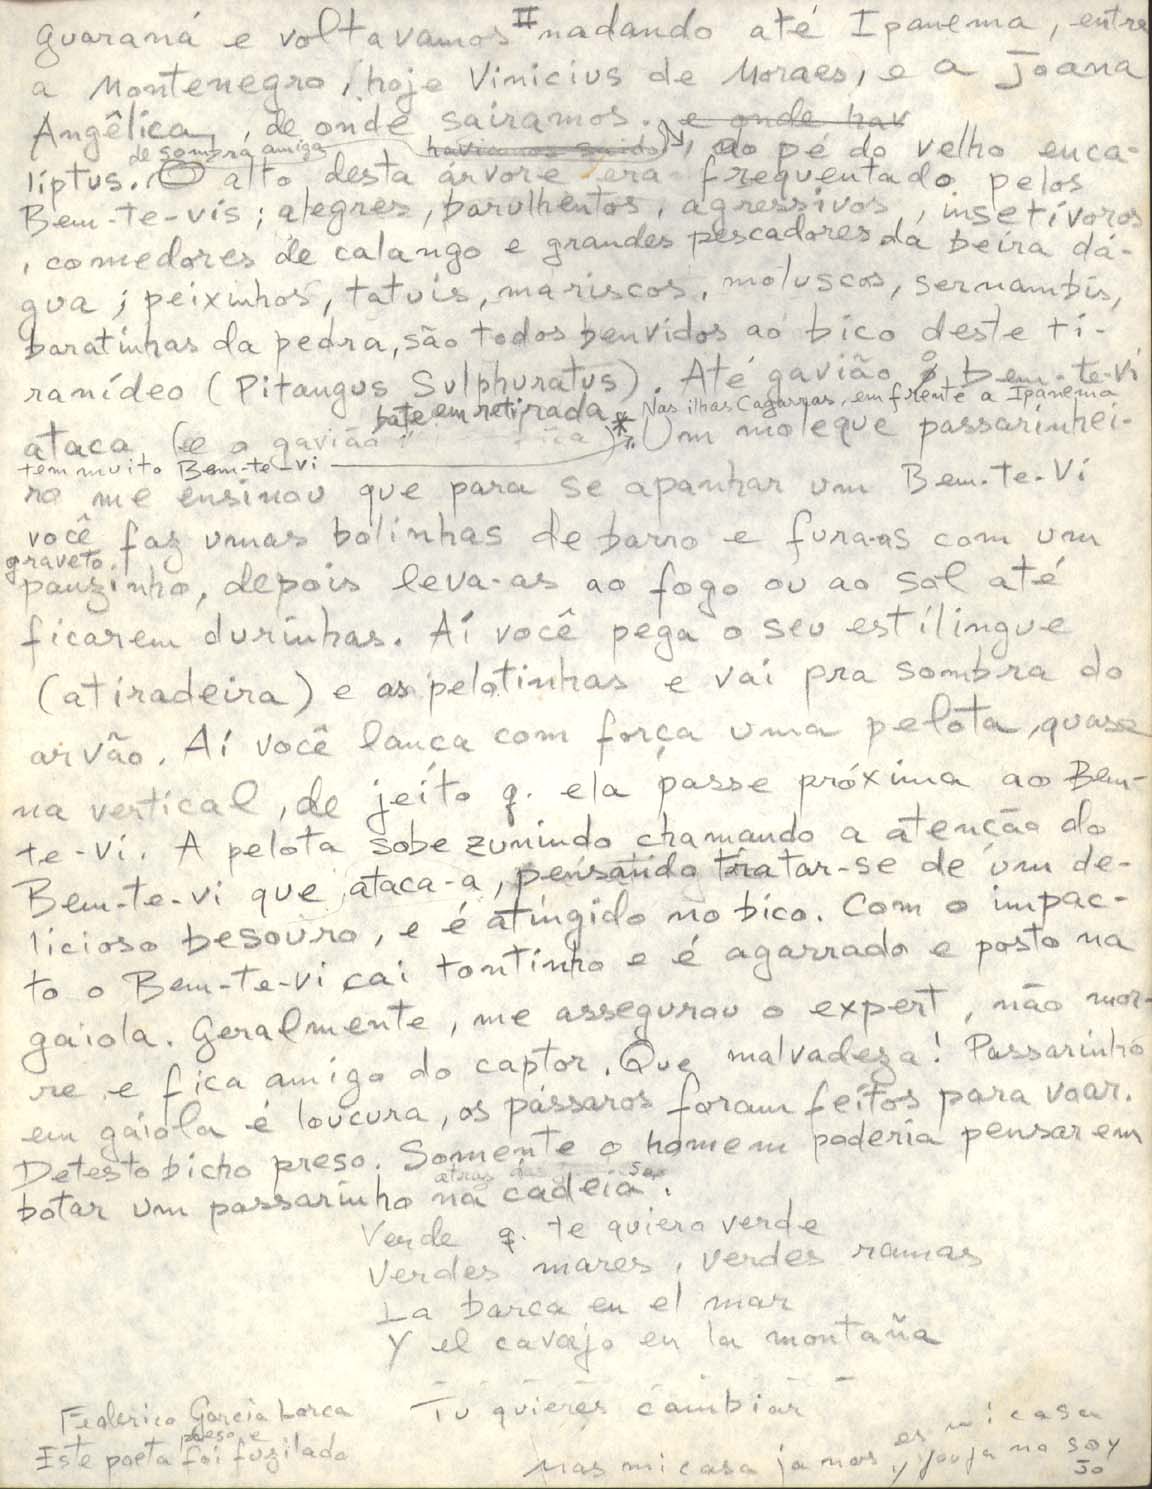 II
guaraná e voltavamos nadando até Ipanema, entre
a Montenegro, hoje Vinicius de Moraes, e a Joana
Angêlica, de onde sairamos. e onde hav
de sombra amiga haviamos saido, ao pé do velho euca-
liptus. O alto desta árvore era frequentado pelos
Bem-te-vis; alegres, barulhentos, agressivos, insetívoros
, comedores de calango e grandes pescadores da beira dá-
gua; peixinhos, tatuis, mariscos, moluscos, sernambis,
baratinhas da pedra, são todos benvidos ao bico deste ti-
ranídeo (Pitangus Sulphuratus). Até gavião o bem-te-vi
bate em retirada * Nas ilhas Cagarras, em frente a Ipanema
ataca (e o gavião ). Um moleque passarinhei-
tem muito Bem-te-vi
ro me ensinou que para se apanhar um Bem-te-Vi
você faz umas bolinhas de barro e fura-as com um
graveto
pauzinho, depois leva-as ao fogo ou ao sol até
ficarem durinhas. Aí você pega o seu estílingue
(atiradeira) e as pelotinhas e vai pra sombra do
arvão. Aí você lança com força uma pelota, quase
na vertical, de jeito q. ela passe próxima ao Bem-
te-vi. A pelota sobe zunindo chamando a atenção do
Bem-te-vi que ataca-a, pensando tratar-se de um de-
licioso besouro, e é atingido no bico. Com o impac-
to o Bem-te-vi cai tontinho e é agarrado e posto na
gaiola. Geralmente, me assegurou o expert, não mor-
re e fica amigo do captor. Que malvadeza! Passarinho
em gaiola é loucura, os pássaros foram feitos para voar.
Detesto bicho preso. Somente o homem poderia pensar em
atras das
botar um passarinho na cadeia.
Verde q. te quiero verde
Verdes mares, verdes ramas
La barca en el mar
Y el cavajo en la montaña
Tu quieres cambiar
Federico Garcia Lorca
preso e
Este poeta foi fuzilado
es mi casa
Mas mi casa ja mas y yo ya no soy
Jo